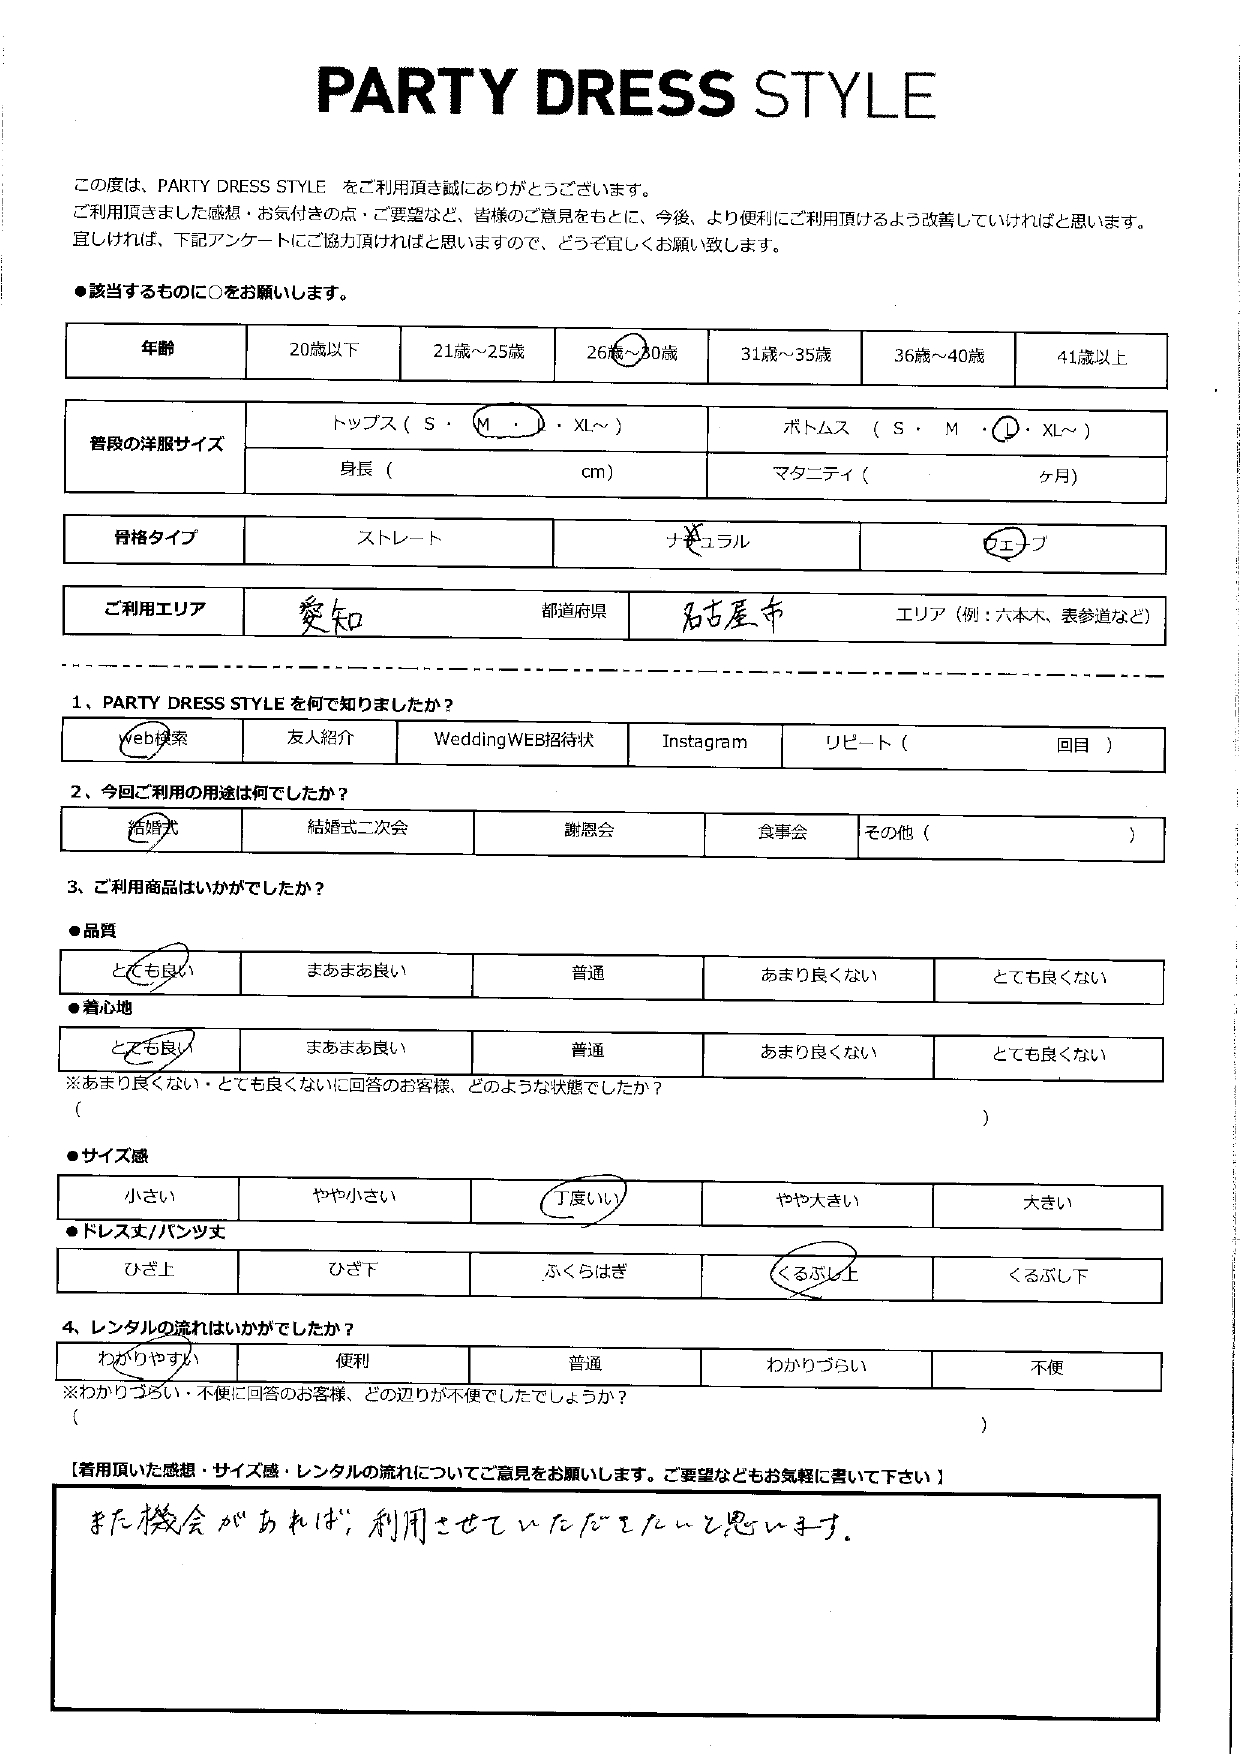 PARTY DRESS STYLE
この度は、PARTY DRESS STYLE をご利用頂き誠にありがとうございます。
ご利用頂きました感想・お気付きの点・ご要望など、皆様のご意見をもとに、今後、より便利にご利用頂けるよう改善していければと思います。
宜しければ、下記アンケートにご協力頂ければと思いますので、どうぞ宜しくお願い致します。
●該当するものに○をお願いします。
年齢 20歳以下 21歳～25歳 26歳～30歳 31歳～35歳 36歳～40歳 41歳以上
普段の洋服サイズ トップス ( S ・ M ・ L ・ XL～ ) ボトムス ( S ・ M ・ L ・ XL～ )
身長 ( cm) マタニティ ( ヶ月)
骨格タイプ ストレート ナチュラル ウェーブ
ご利用エリア 愛知 都道府県 名古屋市 エリア（例：六本木、表参道など）
1、PARTY DRESS STYLE を何で知りましたか？
web検索 友人紹介 WeddingWEB招待状 Instagram リピート ( 回目 )
2、今回ご利用の用途は何でしたか？
結婚式 結婚式二次会 謝恩会 食事会 その他 ( )
3、ご利用商品はいかがでしたか？
●品質
とても良い まあまあ良い 普通 あまり良くない とても良くない
●着心地
とても良い まあまあ良い 普通 あまり良くない とても良くない
※あまり良くない・とても良くないに回答のお客様、どのような状態でしたか？
( )
●サイズ感
小さい やや小さい 丁度いい やや大きい 大きい
●ドレス丈/パンツ丈
ひざ上 ひざ下 ふくらはぎ くるぶし上 くるぶし下
4、レンタルの流れはいかがでしたか？
わかりやすい 便利 普通 わかりづらい 不便
※わかりづらい・不便に回答のお客様、どの辺りが不便でしたでしょうか？
( )
【着用頂いた感想・サイズ感・レンタルの流れについてご意見をお願いします。ご要望などもお気軽に書いて下さい】
また機会があれば、利用させていただきたいと思います。